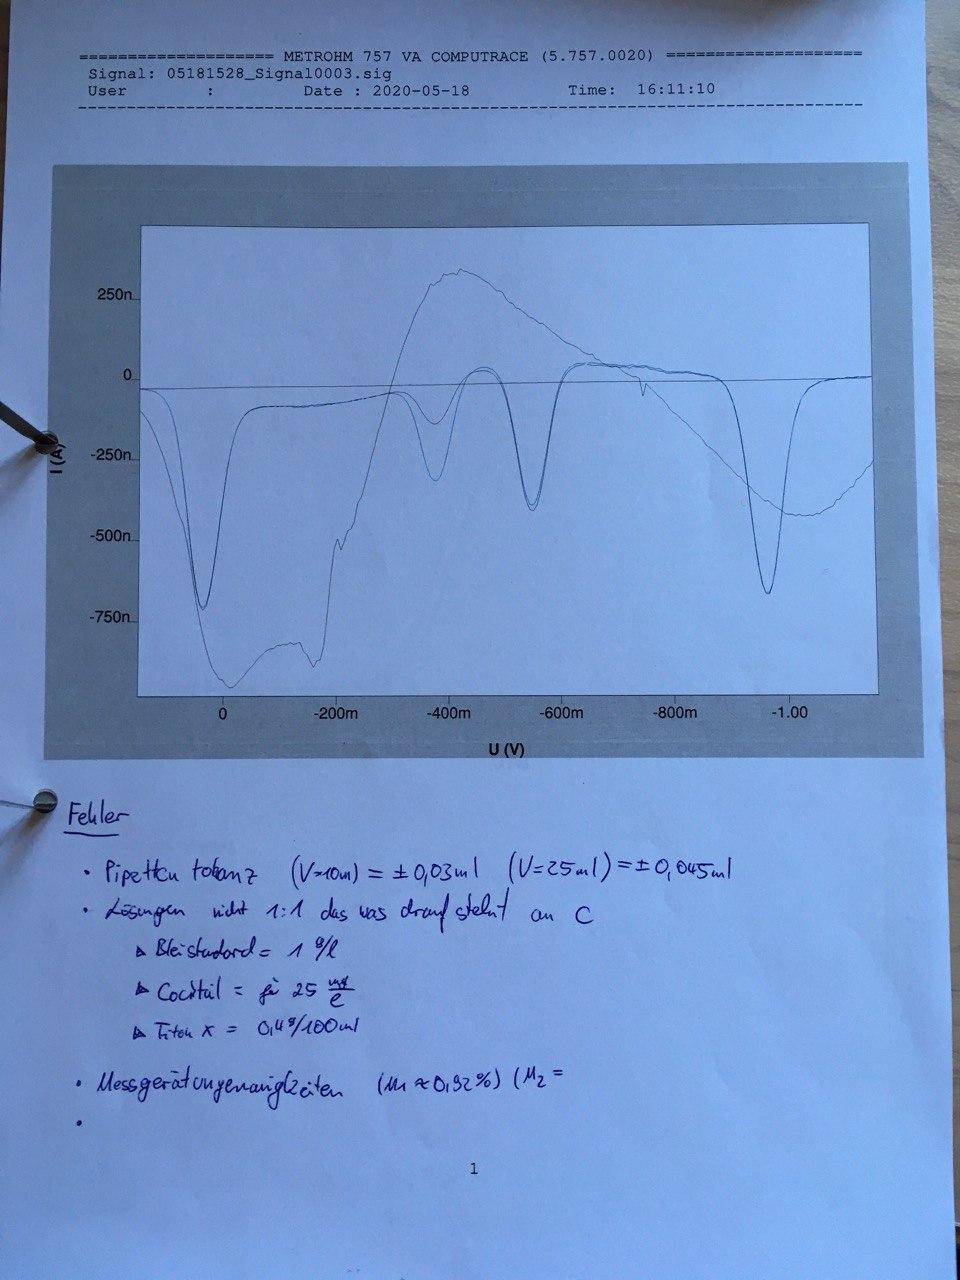 ==================== METROHM 757 VA COMPUTRACE (5.757.0020) ====================
Signal: 05181528_Signal0003.sig
User : Date : 2020-05-18 Time: 16:11:10
250n
0
-250n
I (A)
-500n
-750n
0 -200m -400m -600m -800m -1.00
U (V)
Fehler
• Pipetten tolranz (V=10ml) = ±0,03ml (V=25ml) = ±0,045ml
• Lösungen nicht 1:1 das was drauf steht an C
Bleistandard = 1 g/l
Cocktail = je 25 mg/l
Triton X = 0,4g/100ml
• Messgerätungenauigkeiten (M1 ≈ 0,92%) (M2 =
•
1